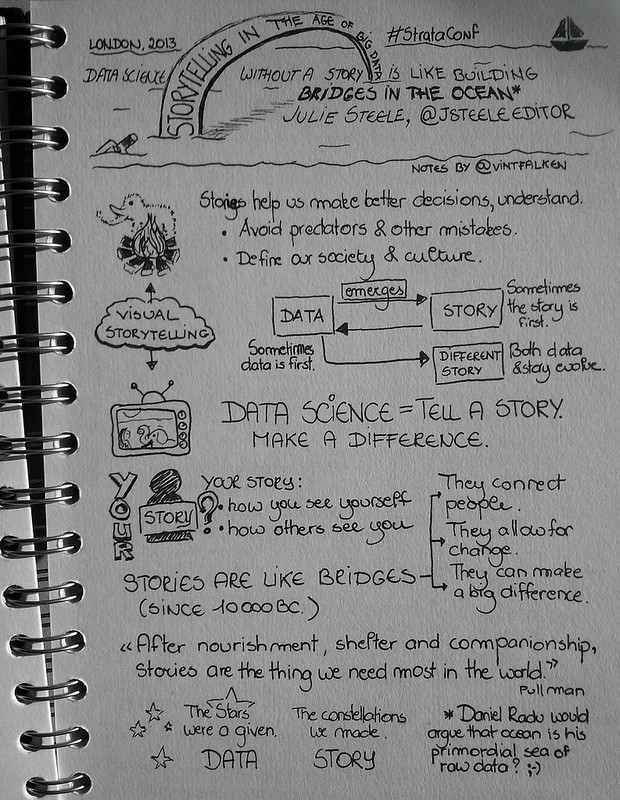 LONDON, 2013
STORYTELLING IN THE AGE OF BIG DATA
#StrataConf
DATA SCIENCE WITHOUT A STORY IS LIKE BUILDING
BRIDGES IN THE OCEAN*
JULIE STEELE, @JSTEELEEDITOR
NOTES BY @VINTFALKEN
Stories help us make better decisions, understand.
• Avoid predators & other mistakes.
• Define our society & culture.
VISUAL
STORYTELLING
DATA
emerges
STORY
Sometimes
the story is
first.
Sometimes
data is first.
DIFFERENT
STORY
Both data
& story evolve.
DATA SCIENCE = TELL A STORY.
MAKE A DIFFERENCE.
YOUR
STORY
?
YOUR STORY:
• how you see yourself
• how others see you
STORIES ARE LIKE BRIDGES
(SINCE 10 000 BC.)
They connect
people.
They allow for
change.
They can make
a big difference.
“After nourishment, shelter and companionship,
Stories are the thing we need most in the world.”
Pullman
The Stars
were a given.
DATA
The constellations
we made.
STORY
* Daniel Radu would
argue that ocean is his
primordial sea of
raw data? ;-)